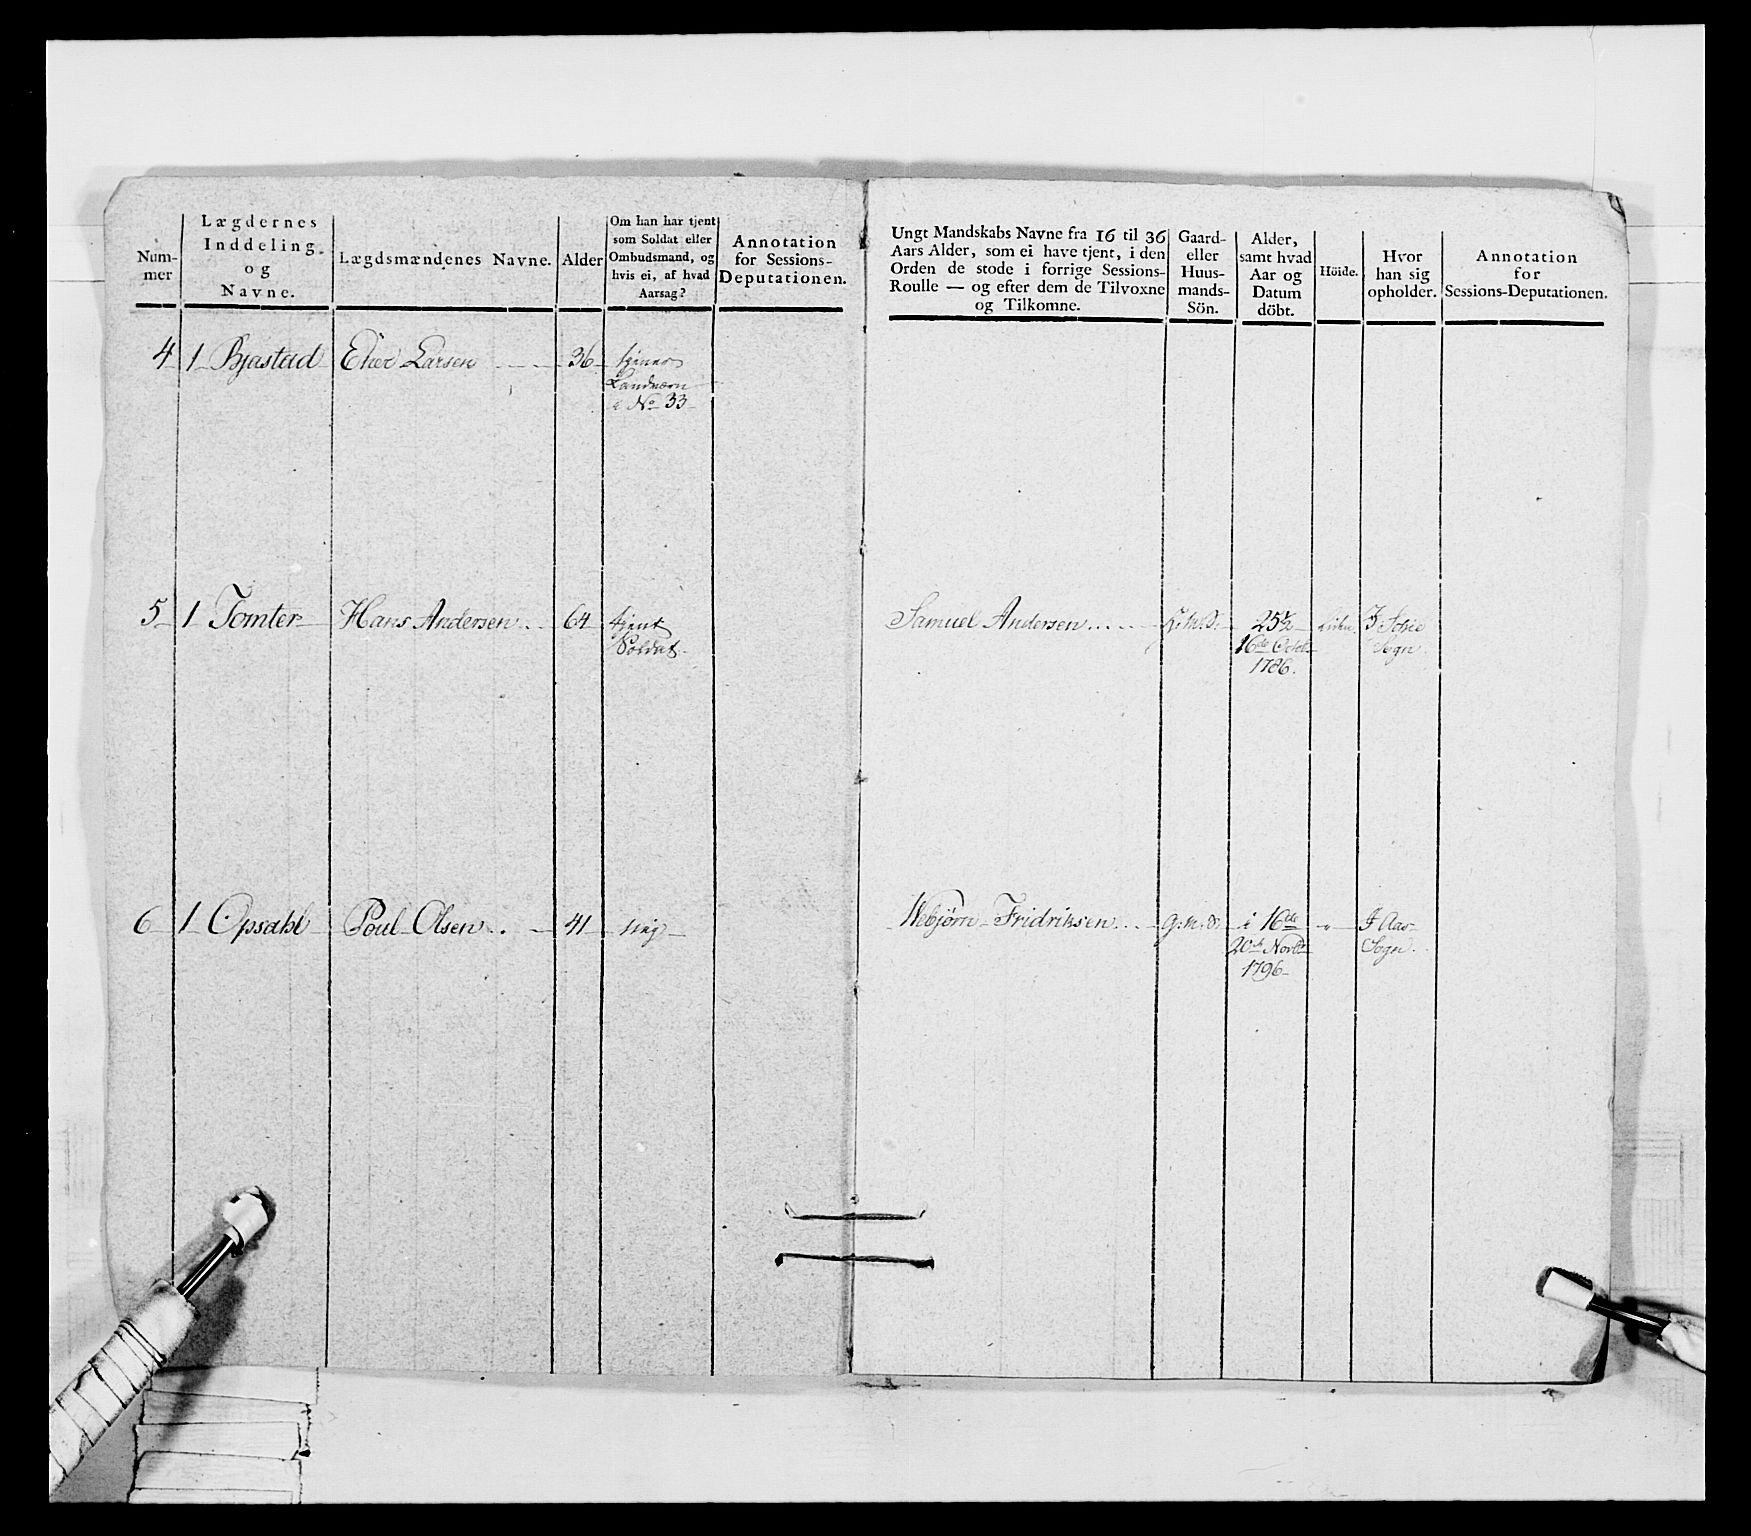 Num-
mer
Lægdernes
Inddeling
og
Navne.
Lægdsmændenes Navne.
Alder
Om han har tjent
som Soldat eller
Ombudsmand, og
hvis ei, af hvad
Aarsag?
Annotation
for Sessions-
Deputationen.
Ungt Mandskabs Navne fra 16 til 36
Aars Alder, som ei have tjent, i den
Orden de stode i forrige Sessions-
Roulle — og efter dem de Tilvoxne
og Tilkomne.
Gaard-
eller
Huus-
mands-
Sön.
Alder,
samt hvad
Aar og
Datum
döbt.
Höide.
Hvor
han sig
opholder.
Annotation
for
Sessions-Deputationen.
4 1 Bjastad Larsen 36 tjener
Landværn
i No 33
5 1 Tomter Hans Andersen 64 tjent
Soldat
Samuel Andersen 25½
16de Octob
1786
Sogn
6 1 Opsahl Poul Olsen 41
Webjørn Fridriksen G.M.S. i 16de I Aas
20de Novbr Sogn
1796